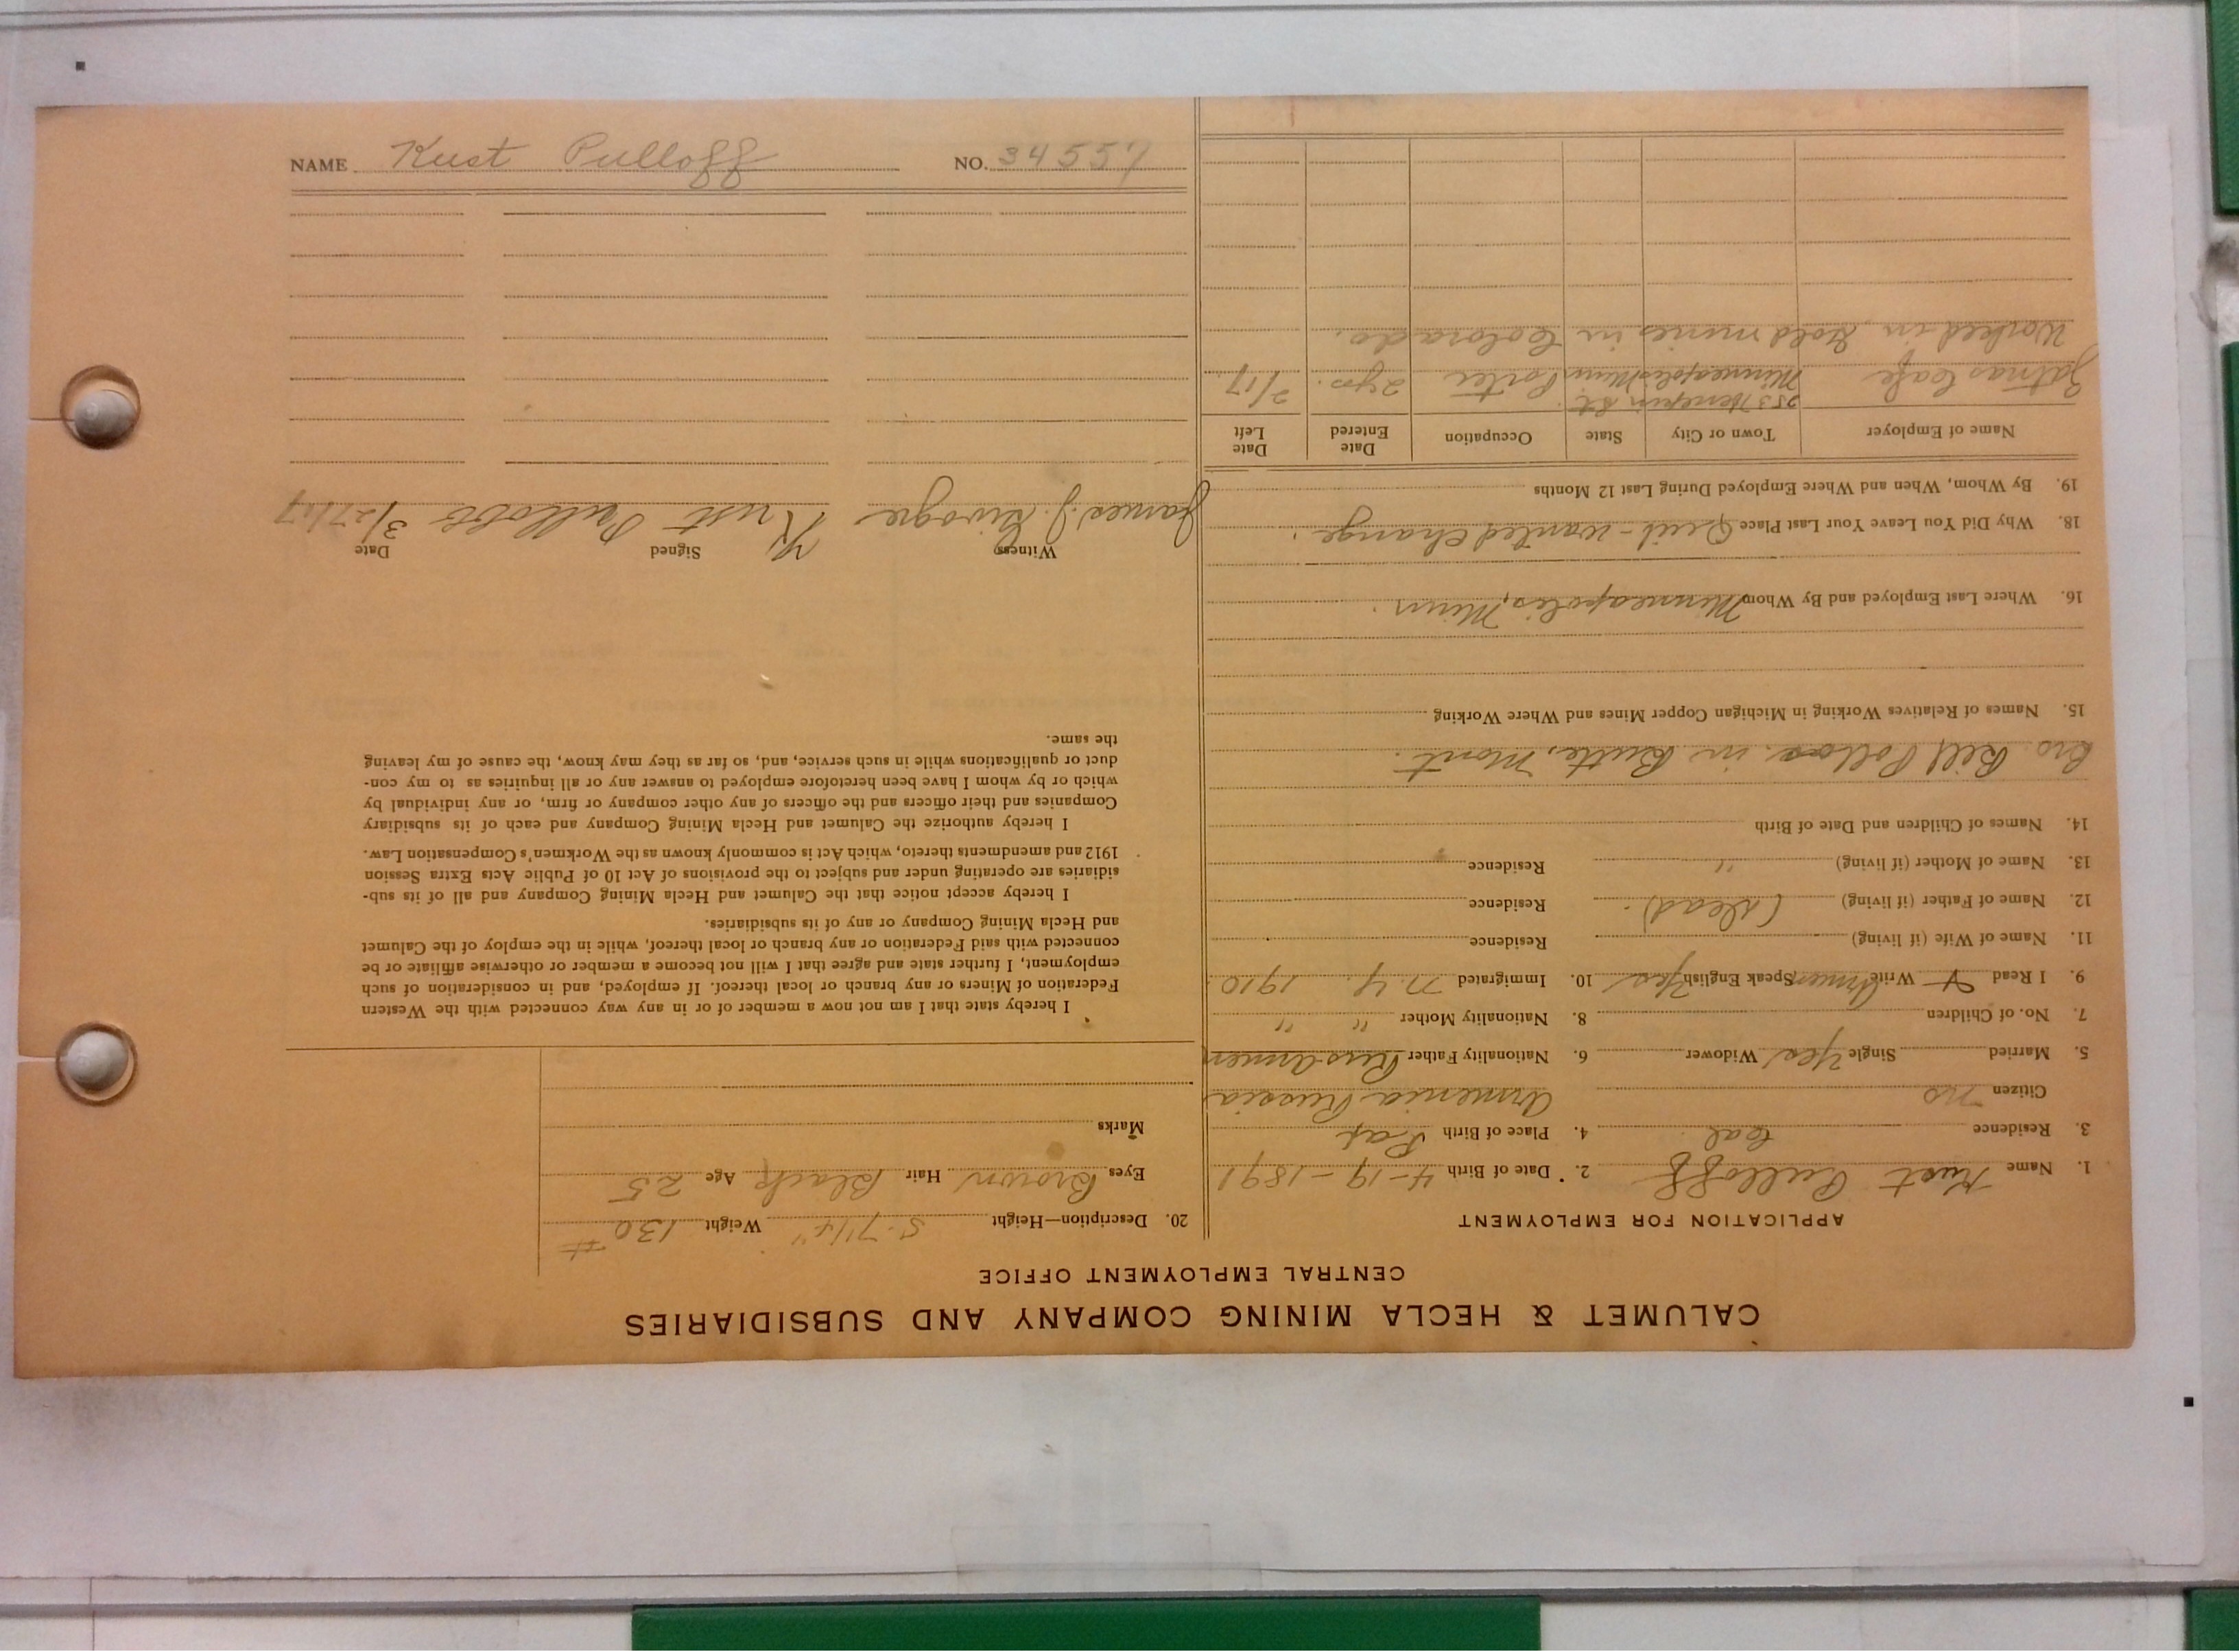 CALUMET & HECLA MINING COMPANY AND SUBSIDIARIES
CENTRAL EMPLOYMENT OFFICE
APPLICATION FOR EMPLOYMENT
1. Name Kust Pulloff 2. Date of Birth 4-19-1891
3. Residence Cal 4. Place of Birth Kas
Citizen no Armenia Russia
5. Married Single Yes Widower 6. Nationality Father Russ Armen
7. No. of Children 8. Nationality Mother " "
9. I Read Write Armen Speak English Yes 10. Immigrated N.Y. 1910
11. Name of Wife (if living) Residence
12. Name of Father (if living) (dead). Residence
13. Name of Mother (if living) " Residence
14. Names of Children and Date of Birth
Bro Bill in Butte, Mont.
15. Names of Relatives Working in Michigan Copper Mines and Where Working
16. Where Last Employed and By Whom Minneapolis, Minn.
18. Why Did You Leave Your Last Place Quit - wanted change.
19. By Whom, When and Where Employed During Last 12 Months
Name of Employer Town or City State Occupation Date Entered Date Left
253 Henepin St.
Cafe Minneapolis Minn Porter 2 yrs. 2/17.
Worked in Gold mines in Colorado.
20. Description—Height 5-7 1/4" Weight 130 #
Eyes Brown Hair Black Age 25
Marks
I hereby state that I am not now a member of or in any way connected with the Western
Federation of Miners or any branch or local thereof. If employed, and in consideration of such
employment, I further state and agree that I will not become a member or otherwise affiliate or be
connected with said Federation or any branch or local thereof, while in the employ of the Calumet
and Hecla Mining Company or any of its subsidiaries.
I hereby accept notice that the Calumet and Hecla Mining Company and all of its sub-
sidiaries are operating under and subject to the provisions of Act 10 of Public Acts Extra Session
1912 and amendments thereto, which Act is commonly known as the Workmen's Compensation Law.
I hereby authorize the Calumet and Hecla Mining Company and each of its subsidiary
Companies and their officers and the officers of any other company or firm, or any individual by
which or by whom I have been heretofore employed to answer any or all inquiries as to my con-
duct or qualifications while in such service, and, so far as they may know, the cause of my leaving
the same.
Witness Signed Date
James J. Kust 3/27/17
NAME Kust Pulloff NO. 34557